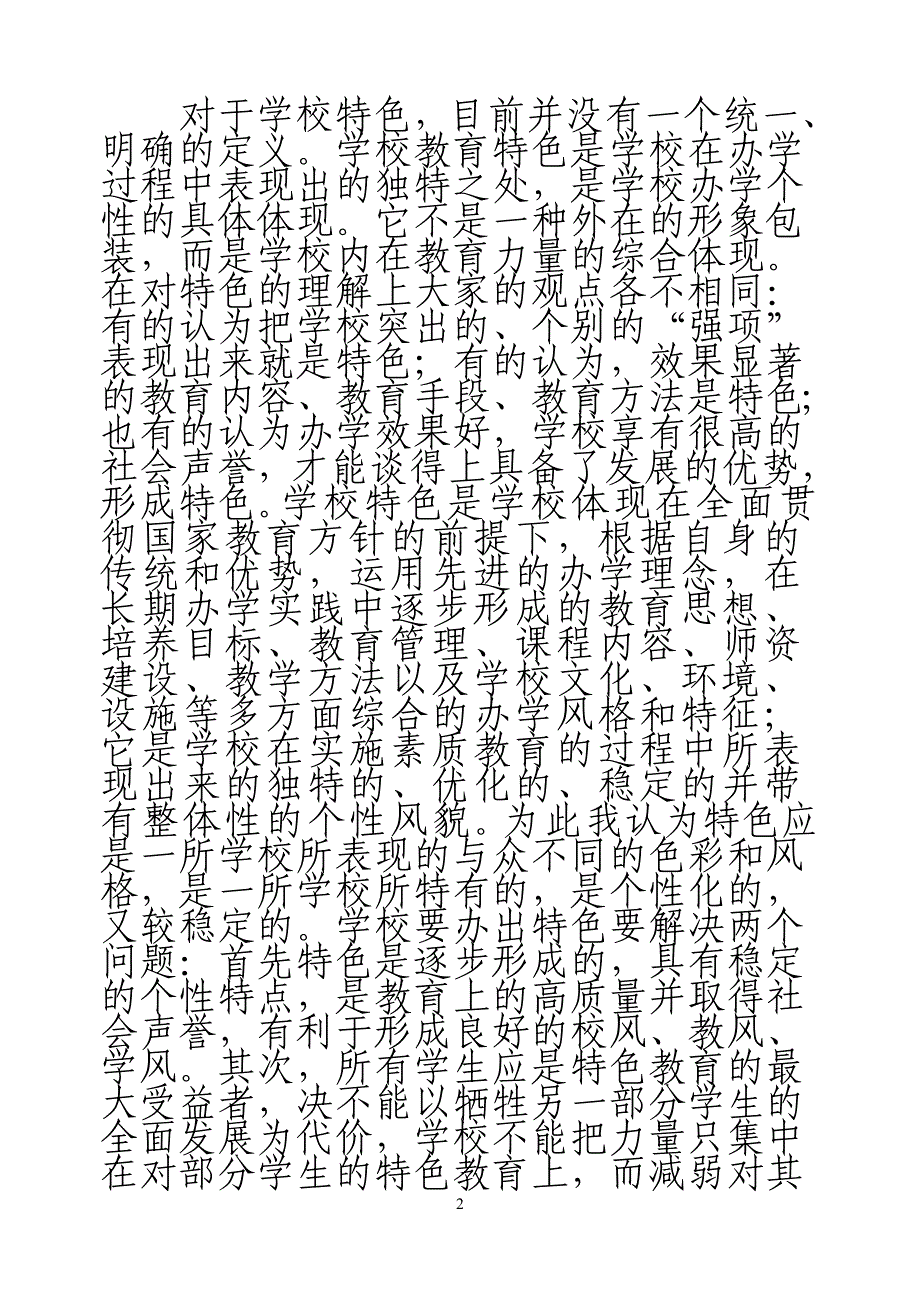 对于学校特色，目前并没有一个统一、
明确的定义。学校教育特色是学校在办学
过程中表现出的独特之处，是学校办学个
性的具体体现。它不是一种外在的形象包
装，而是学校内在教育力量的综合体现。
在对特色的理解上大家的观点各不相同：
有的认为把学校突出的、个别的“强项”
表现出来就是特色；有的认为，效果显著
的教育内容、教育手段、教育方法是特色；
也有的认为办学效果好，学校享有很高的
社会声誉，才能谈得上具备了发展的优势，
形成特色。学校特色是学校体现在全面贯
彻国家教育方针的前提下，根据自身的
传统和优势，运用先进的办学理念，在
长期办学实践中逐步形成的教育思想、
培养目标、教育管理、课程内容、师资
建设、教学方法以及学校文化、环境、
设施等多方面综合的办学风格和特征；
它是学校在实施素质教育的过程中所表
现出来的独特的、优化的、稳定的并带
有整体性的个性风貌。为此我认为特色应
是一所学校所表现的与众不同的色彩和风
格，是一所学校所特有的，是个性化的，
又较稳定的。学校要办出特色要解决两个
问题：首先特色是逐步形成的，具有稳定
的个性特点，是教育上的高质量并取得社
会声誉，有利于形成良好的校风、教风、
学风。其次，所有学生应是特色教育的最
大受益者，决不能以牺牲另一部分学生的
全面发展为代价，学校不能把力量只集中
在对部分学生的特色教育上，而减弱对其
2